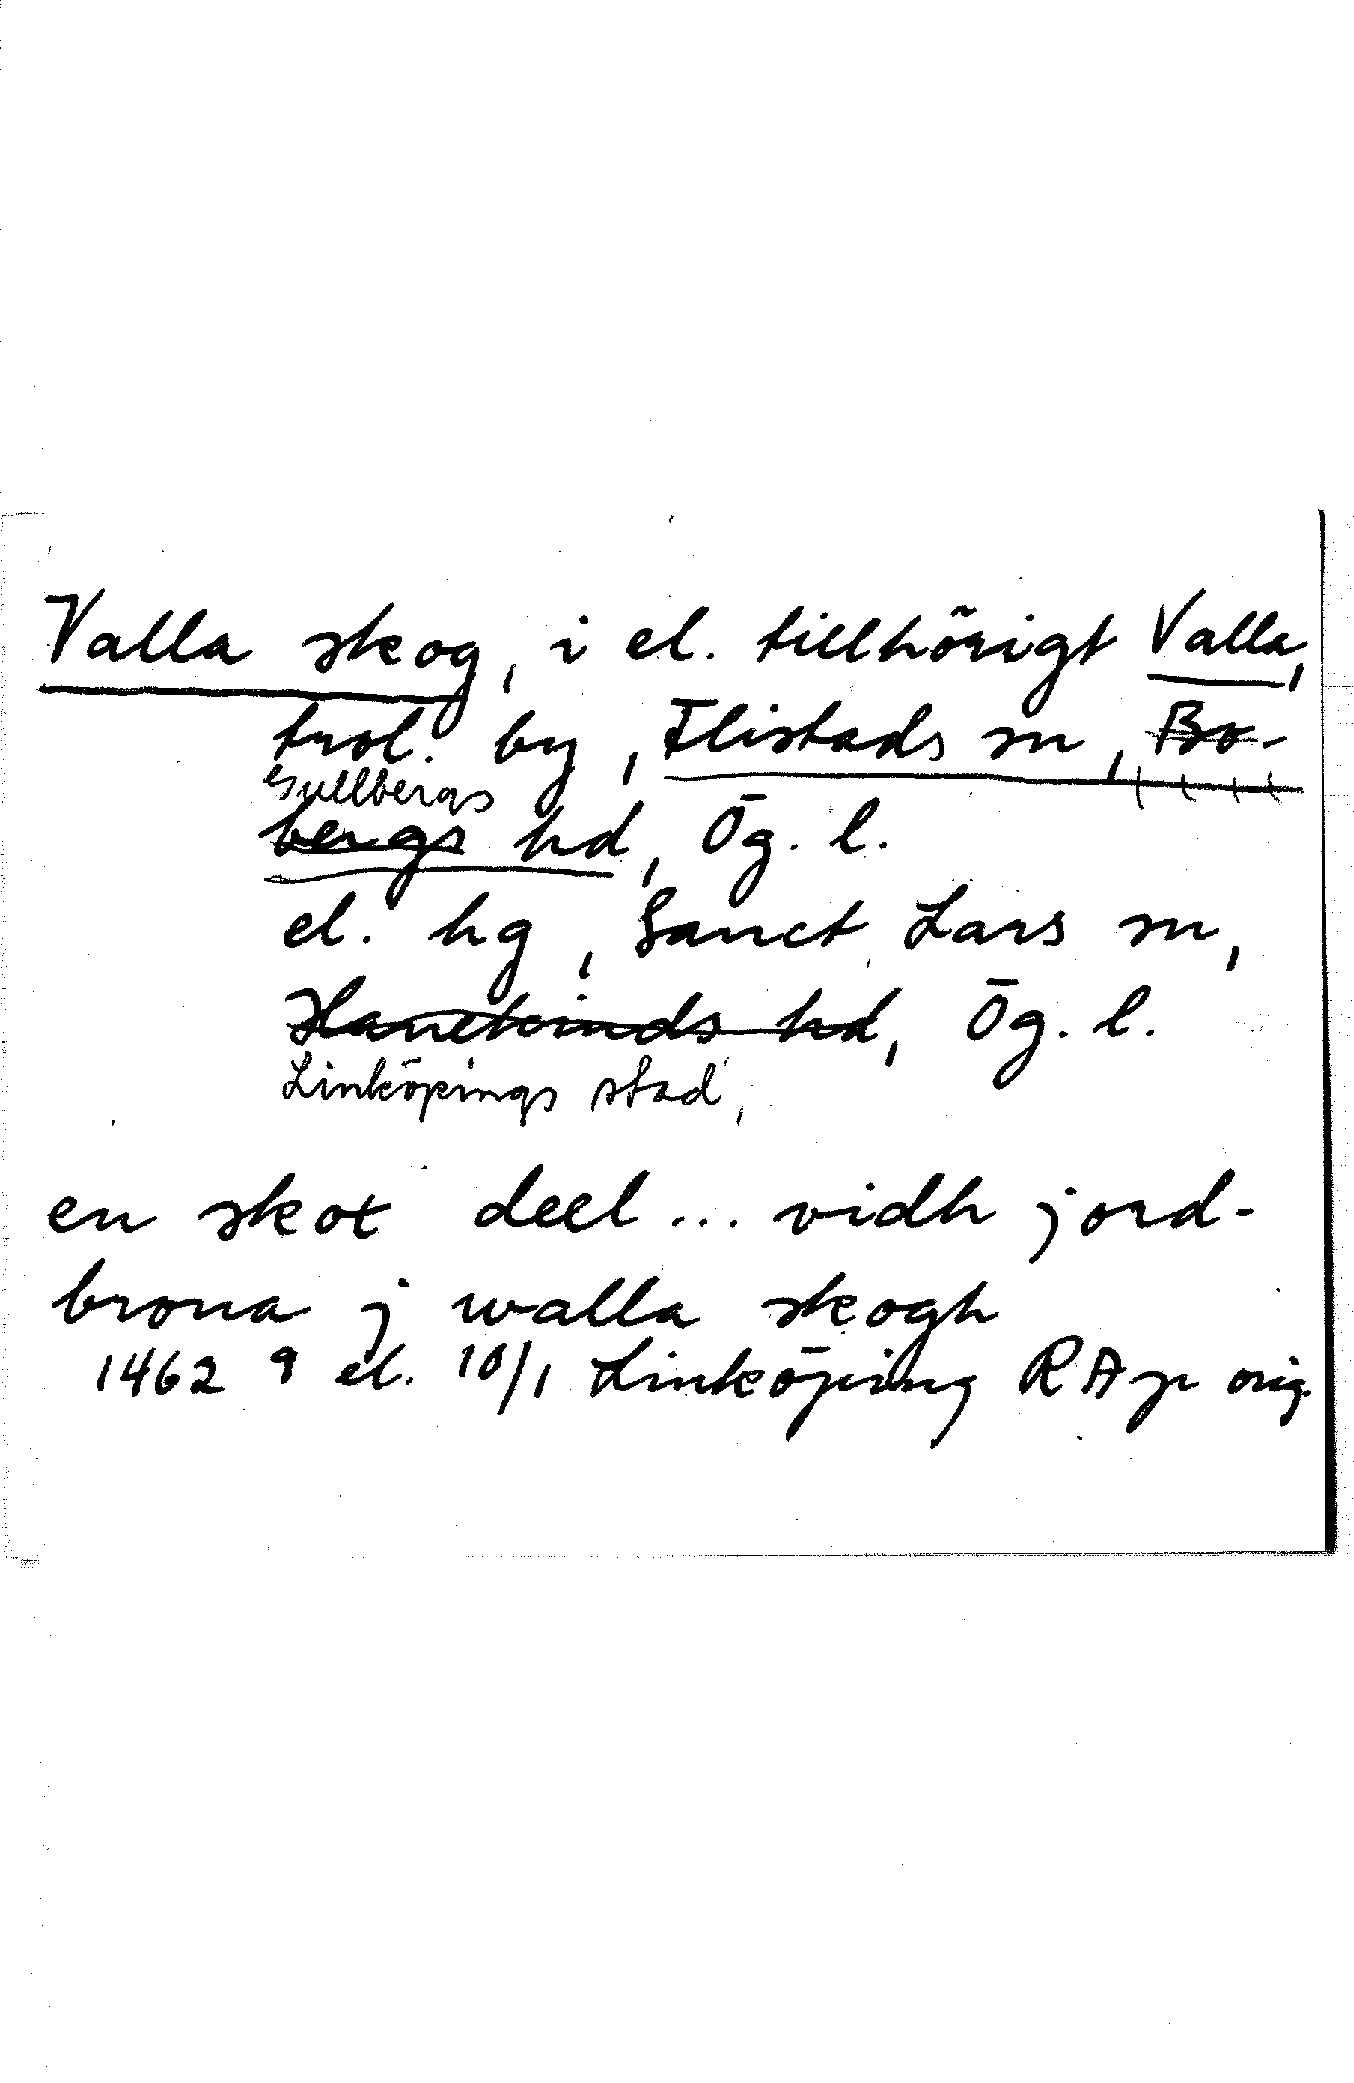 Valla skog, i el. tillhörigt Valla,
trol. by, Flistads sn, Bo-
Gullbergs
bergs hd, Ög. l.
el. hg, Sanct Lars sn,
Hanekinds hd, Ög. l.
Linköpings stad,
en skot deel ... vidh jord-
brona j walla skogh
1462 9 el. 10/1 Linköping RAp orig.